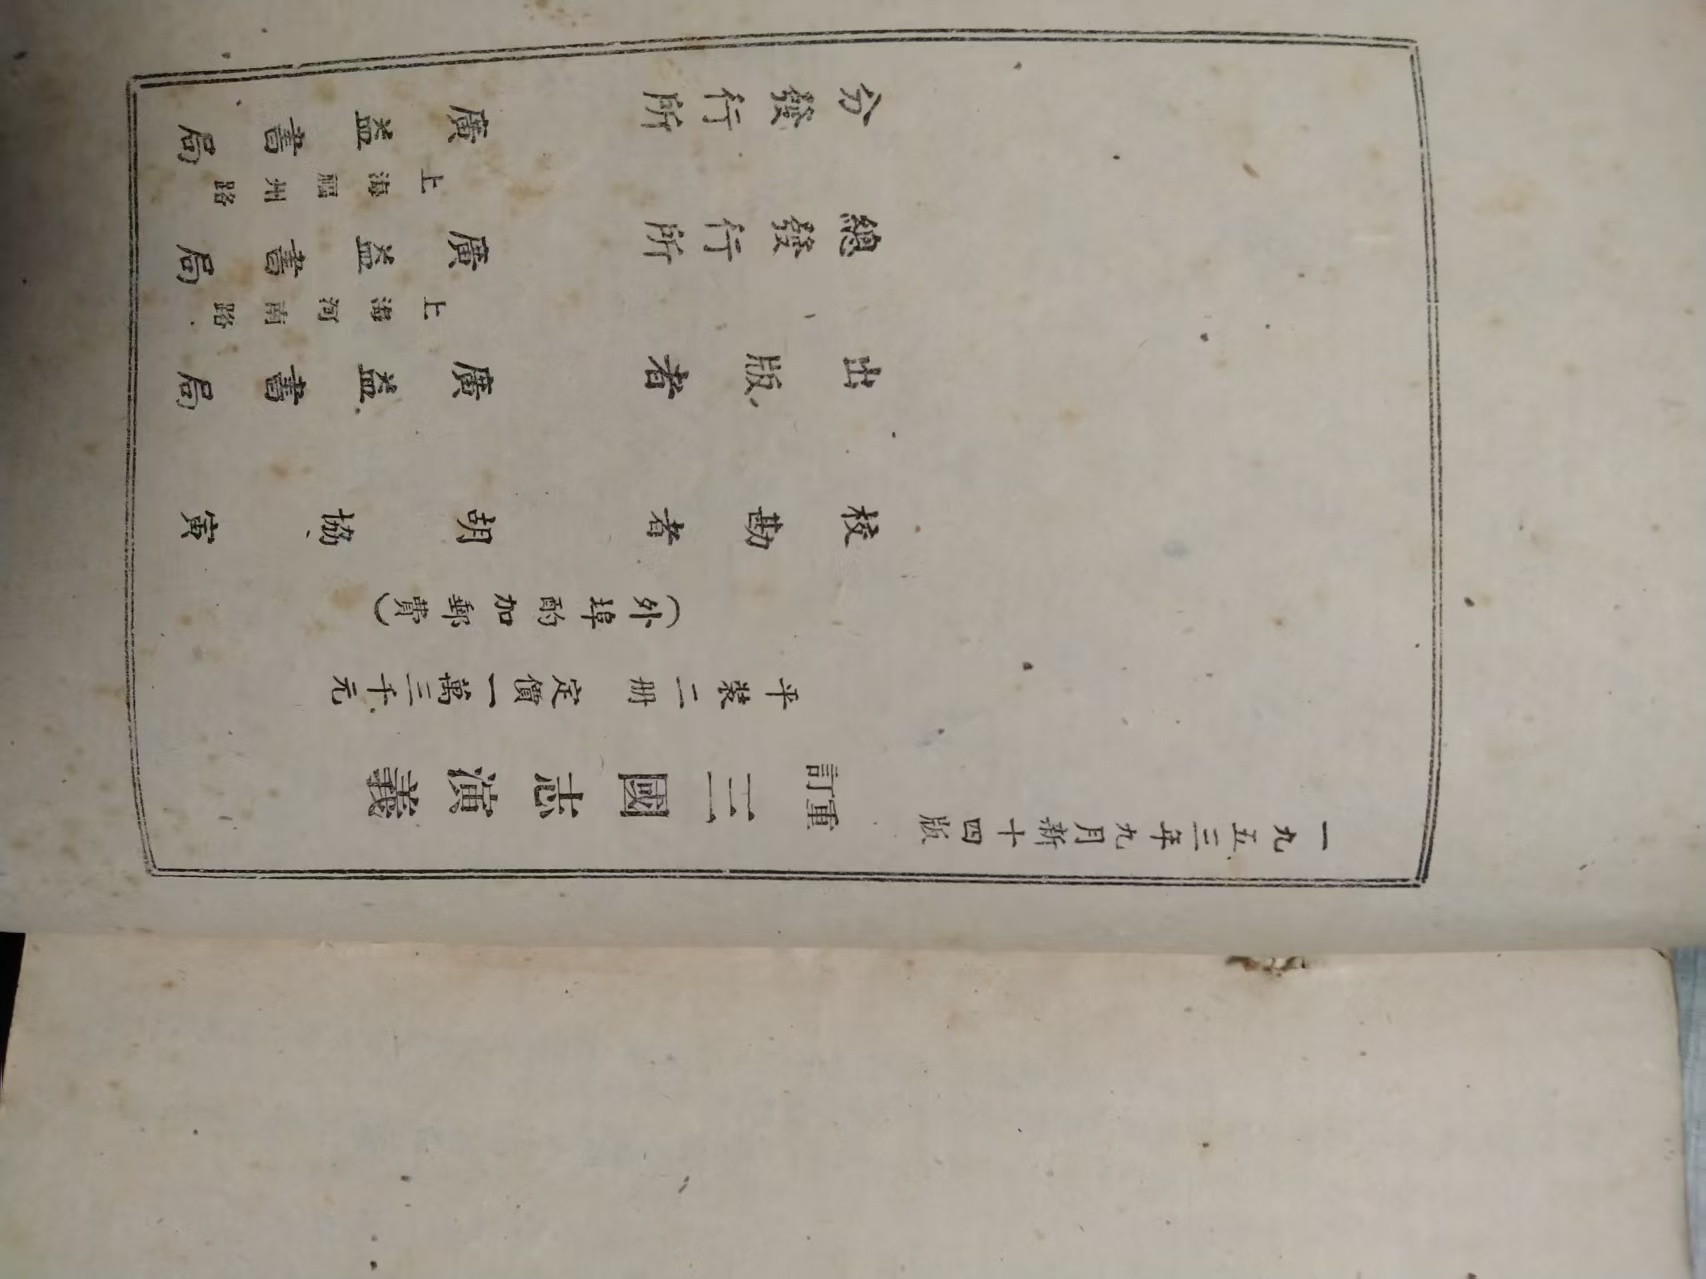 一九五三年九月新十四版
重訂 三國志演義
平裝二册 定價一萬三千元
(外埠酌加郵費)
校勘者 胡協寅
出版者 廣益書局
上海河南路
總發行所 廣益書局
上海福州路
分發行所 廣益書局